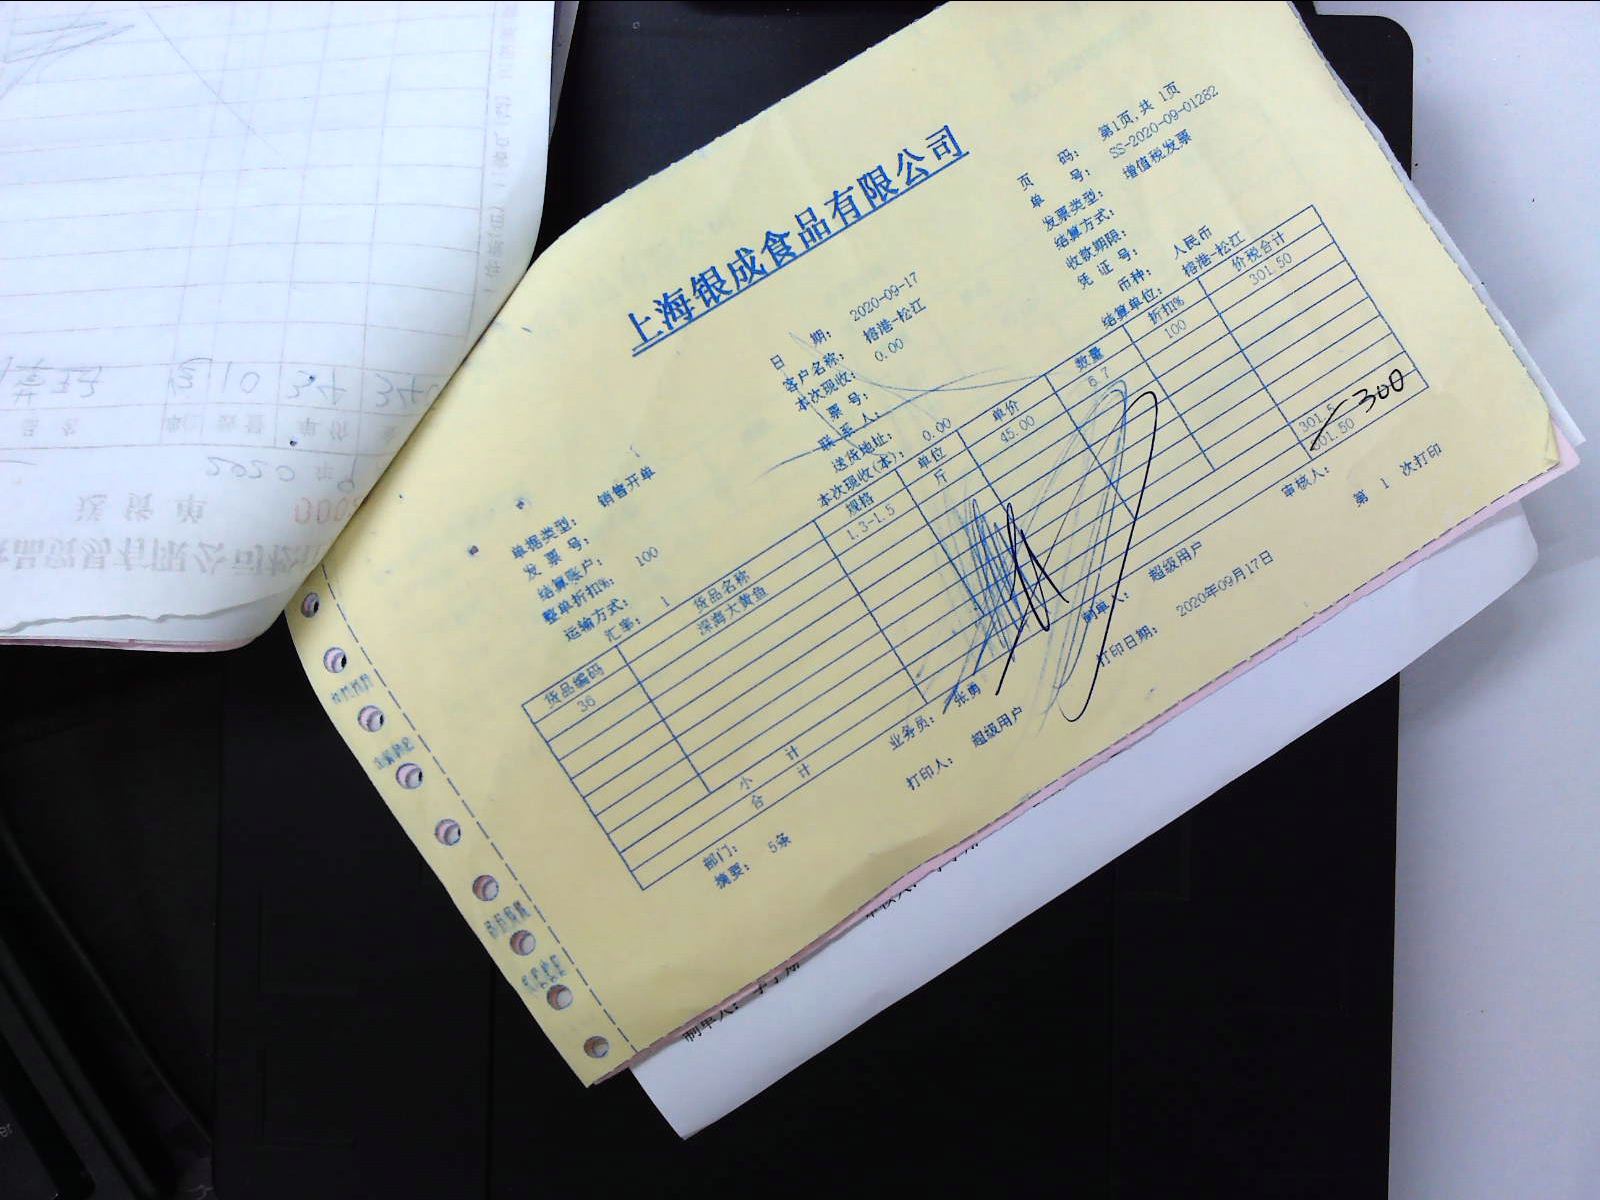 上海银成食品有限公司
页 码： 第1页,共 1页
单 号： SS-2020-09-01282
单据类型： 销售开单
日 期： 2020-09-17
发票类型： 增值税发票
发 票 号：
客户名称： 榕港-松江
结算方式：
结算账户：
本次现收： 0.00
收款期限：
整单折扣%： 100
票 号：
凭 证 号：
运输方式：
联 系 人：
币种： 人民币
汇率： 1
送货地址：
结算单位： 榕港-松江
本次现收(本)： 0.00
货品编码 货品名称 规格 单位 单价 数量 折扣% 价税合计
36 深海大黄鱼 1.3-1.5 斤 45.00 6.7 100 301.50
小 计 301.5
合 计 301.50
300
部门：
业务员： 张勇
制单人： 超级用户
审核人：
摘要： 5条
打印人： 超级用户
打印日期： 2020年09月17日
第 1 次打印
送 货 单
2020 年 9
10 34 340
制单人：